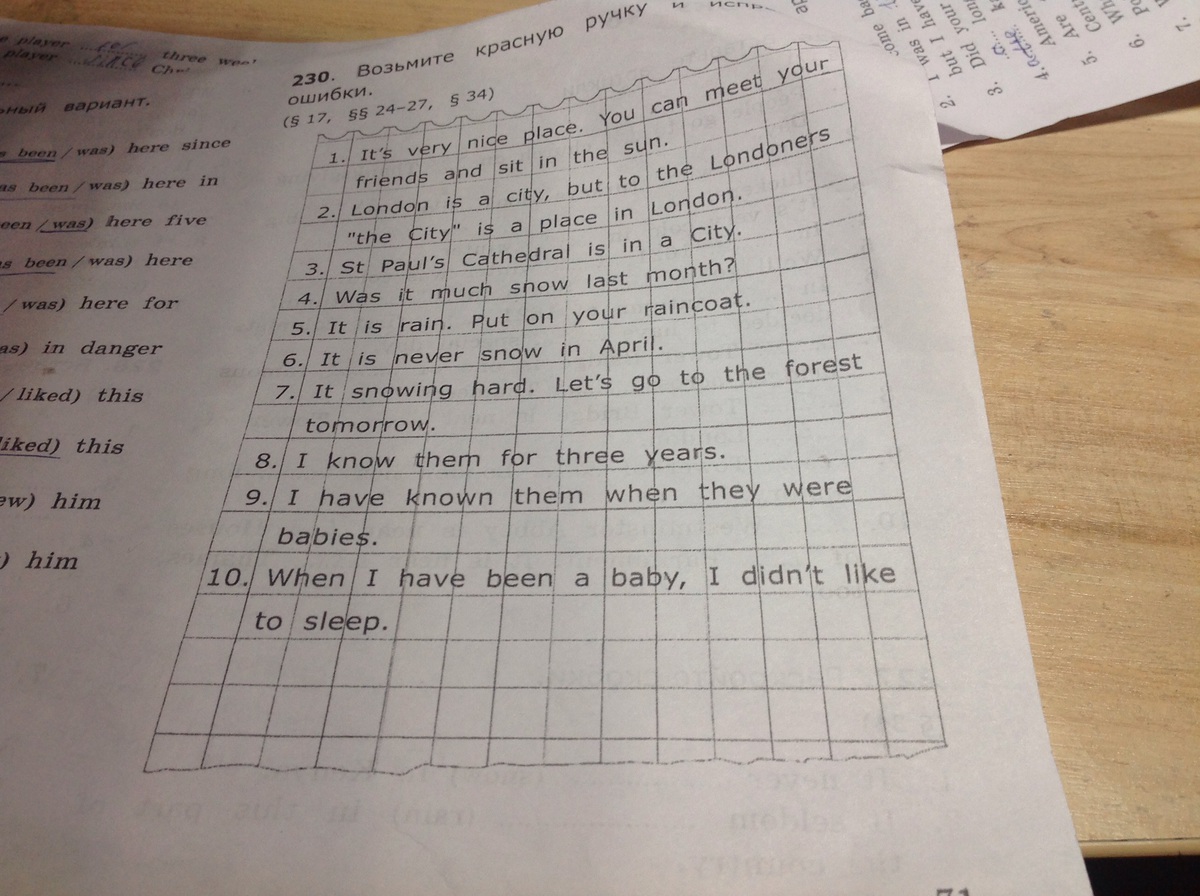 e player three
player
ьный вариант.
s been / was) here since
as been / was) here in
een / was) here five
s been / was) here
/ was) here for
as) in danger
/ liked) this
liked) this
ew) him
) him
230. Возьмите красную ручку и
ошибки.
(§ 17, §§ 24–27, § 34)
1. It's very nice place. You can meet your
friends and sit in the sun.
2. London is a city, but to the Londoners
"the City" is a place in London.
3. St Paul's Cathedral is in a City.
4. Was it much snow last month?
5. It is rain. Put on your raincoat.
6. It is never snow in April.
7. It snowing hard. Let's go to the forest
tomorrow.
8. I know them for three years.
9. I have known them when they were
babies.
10. When I have been a baby, I didn't like
to sleep.
some
I was in
2. but I have
3. Did your
5. Are
6.
7.
71